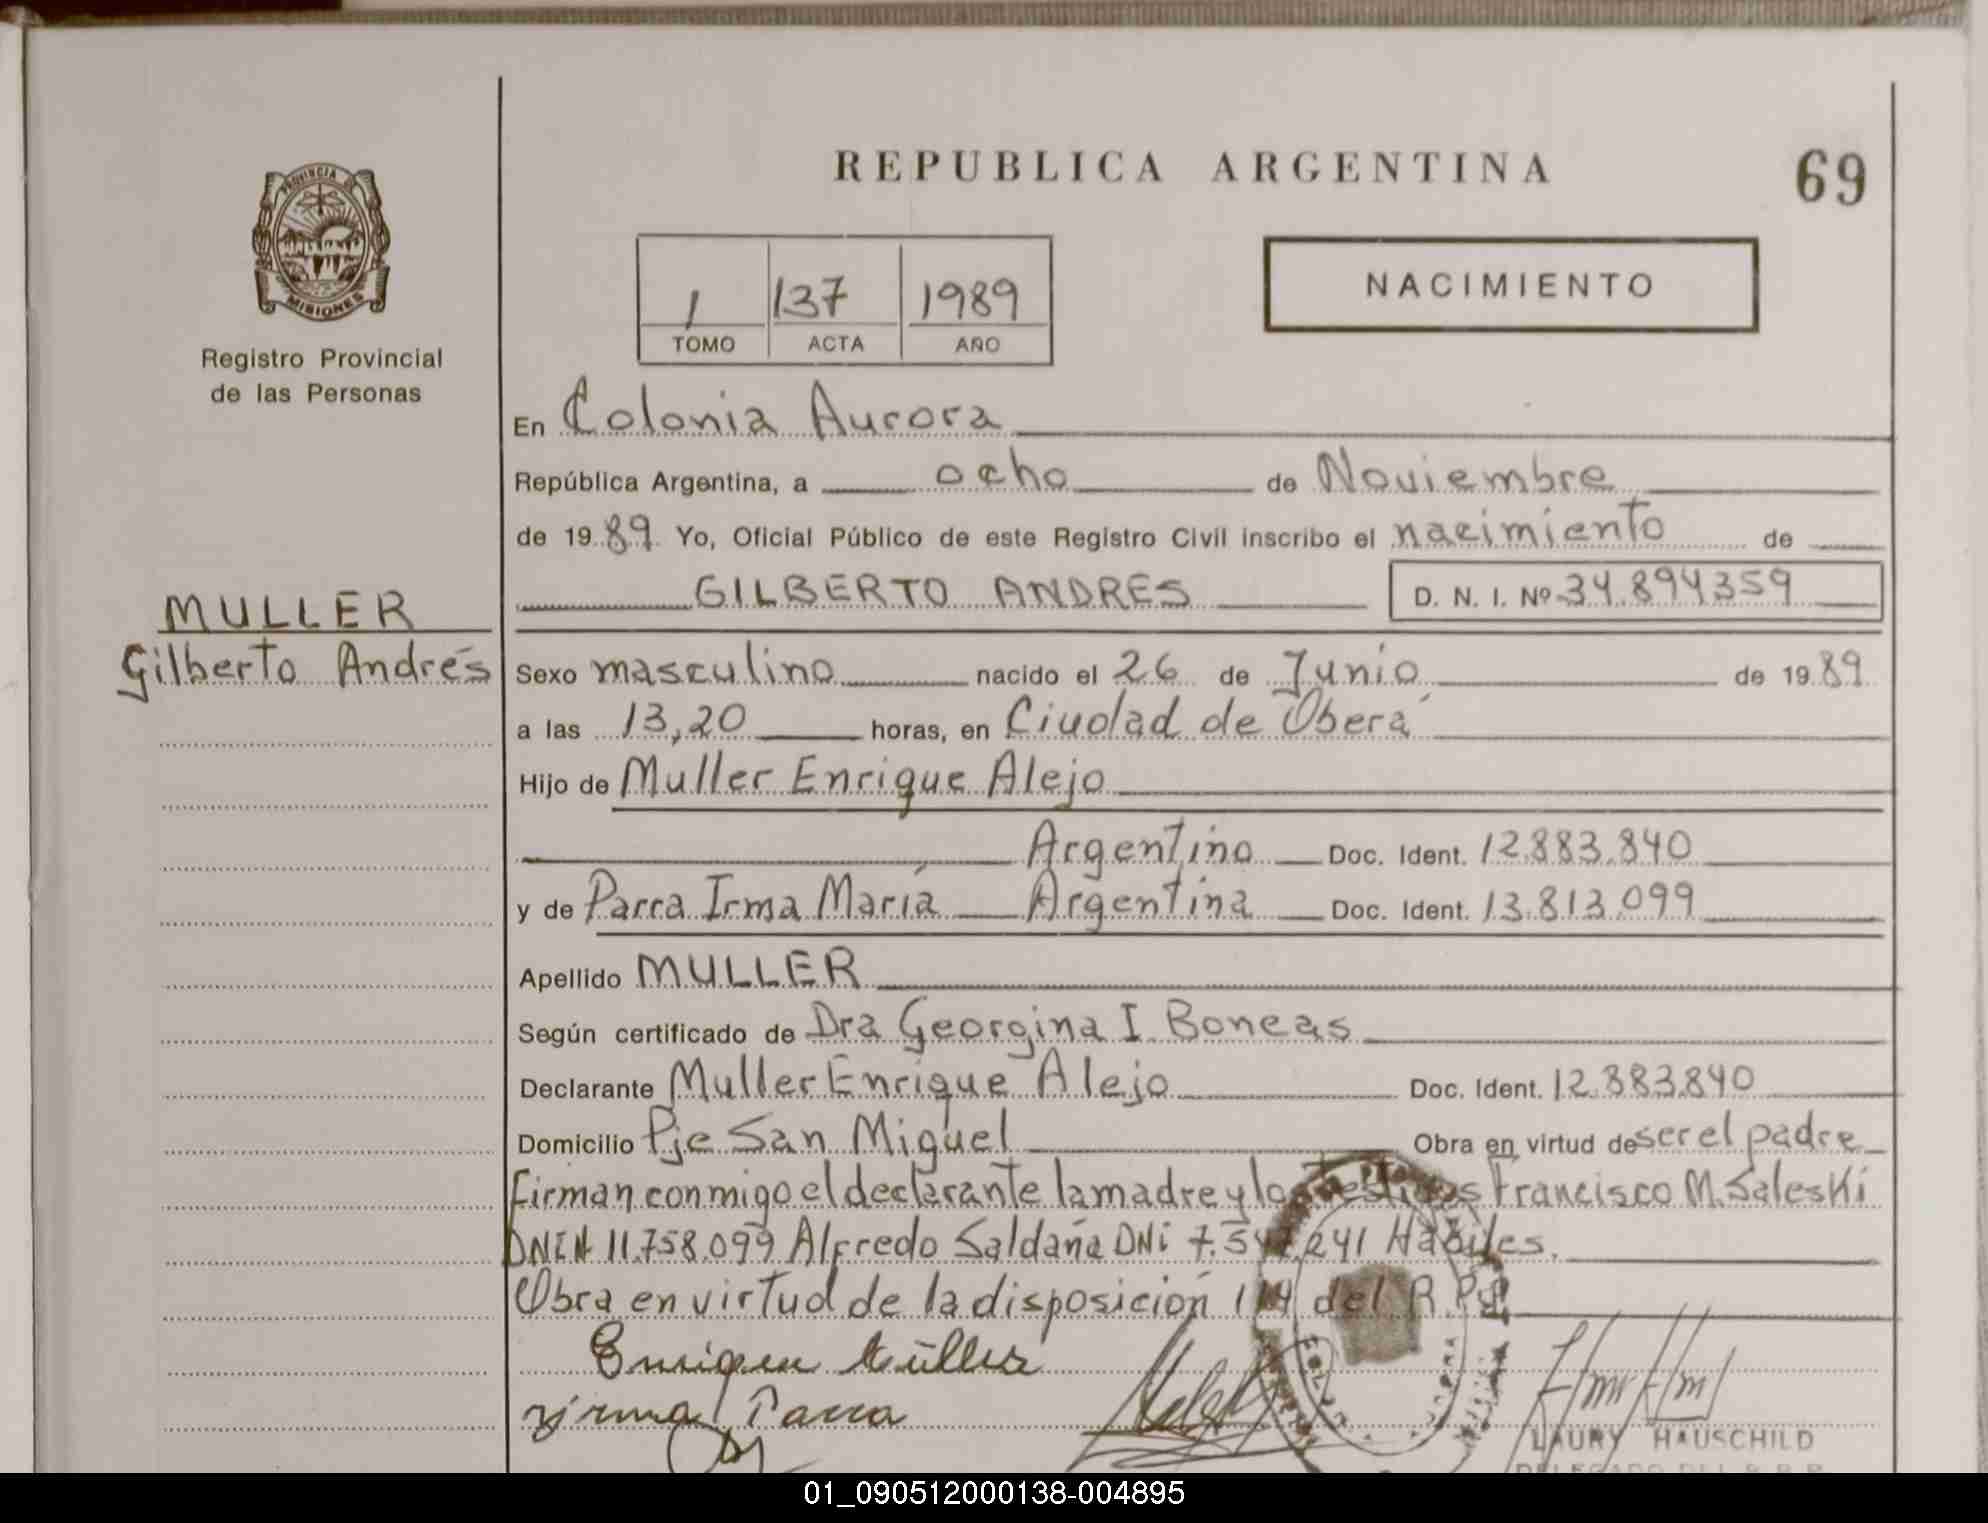 REPUBLICA ARGENTINA
69
PROVINCIA DE
MISIONES
Registro Provincial
de las Personas
1 137 1989
TOMO ACTA AÑO
NACIMIENTO
En Colonia Aurora
República Argentina, a ocho de Noviembre
de 1989 Yo, Oficial Público de este Registro Civil inscribo el nacimiento de
GILBERTO ANDRES D. N. I. Nº 34.894359
MULLER
Gilberto Andrés
Sexo masculino nacido el 26 de Junio de 1989
a las 13,20 horas, en Ciudad de Oberá
Hijo de Muller Enrique Alejo
Argentino Doc. Ident. 12.883.840
y de Parra Irma María Argentina Doc. Ident. 13.813.099
Apellido MULLER
Según certificado de Dra Georgina I. Boneas
Declarante Muller Enrique Alejo Doc. Ident. 12.883.840
Domicilio Pje San Miguel Obra en virtud de ser el padre
firman conmigo el declarante la madre y los testigos Francisco M. Saleski
11.758.099 Alfredo Saldaña DNi Habiles.
Obra en virtud de la disposición del R.P.P.
Enrique Müller
Irma Parra
LAURY HAUSCHILD
01_090512000138-004895